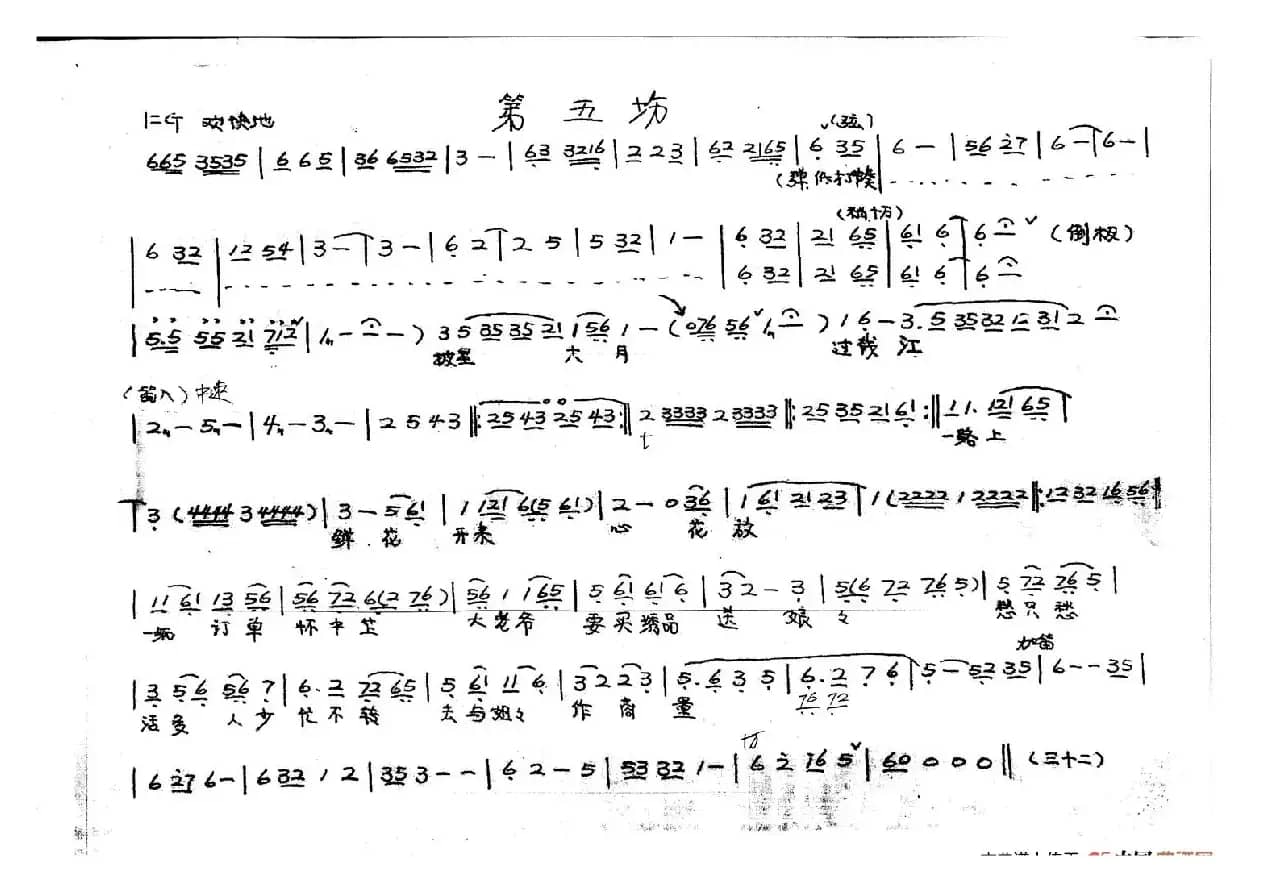 第五场
1=G 欢快地
665 3535 | 6 6 5 | 36 6532 | 3 - | 63 3216 | 2 2 3 | 62 2165 | 6 35 | 6 - | 56 27 | 6 - | 6 - |
(弦)
| 6 32 | 12 54 | 3 - | 3 - | 6 2 | 2 5 | 5 32 | 1 - | 6 32 | 21 65 | 61 6 | 6 - (倒板)
(稍切)
6 32 | 21 65 | 61 6 | 6 -
| 5.5 55 21 712 | 1 - - ) 3 5 35 35 21 1 56 1 - (076 56 1 - ) 1 6 - 3.5 35 32 12 31 2 -
披星 大 月 过我江
(笛入) 中速
| 2 - 5 - | 4 - 3 - | 2 5 4 3 ‖: 25 43 25 43 :‖ 2 3333 2 3333 ‖: 25 35 21 61 :‖ 1 1. 121 65
一路上
3 (4444 3 4444) | 3 - 5 61 | 1 121 6(5 61) | 2 - 0 36 | 1 61 21 23 | 1 (2222 1 2222 ‖: 12 32 16 56 :‖
鲜 花 开来 心 花 放
| 11 61 13 56 | 56 72 6(2 76) | 56 1 1 65 | 5 61 61 6 | 3 2 - 3 | 5(6 72 76 5) | 5 72 76 5 |
订单 怀中 大老爷 要买绣品 送 娘 愁只愁
加笛
| 3 56 56 7 | 6. 2 72 65 | 5 61 11 6 | 3 2 2 3 | 5. 6 3 5 | 6. 2 7 6 | 5 - 52 35 | 6 - - 35 |
76 72
活多 人少忙不转 去与姐 作商量
| 6 27 6 - | 6 32 1 2 | 35 3 - - | 6 2 - 5 | 53 32 1 - | 6 2 76 5 | 60 0 0 0 ‖ (三十二)